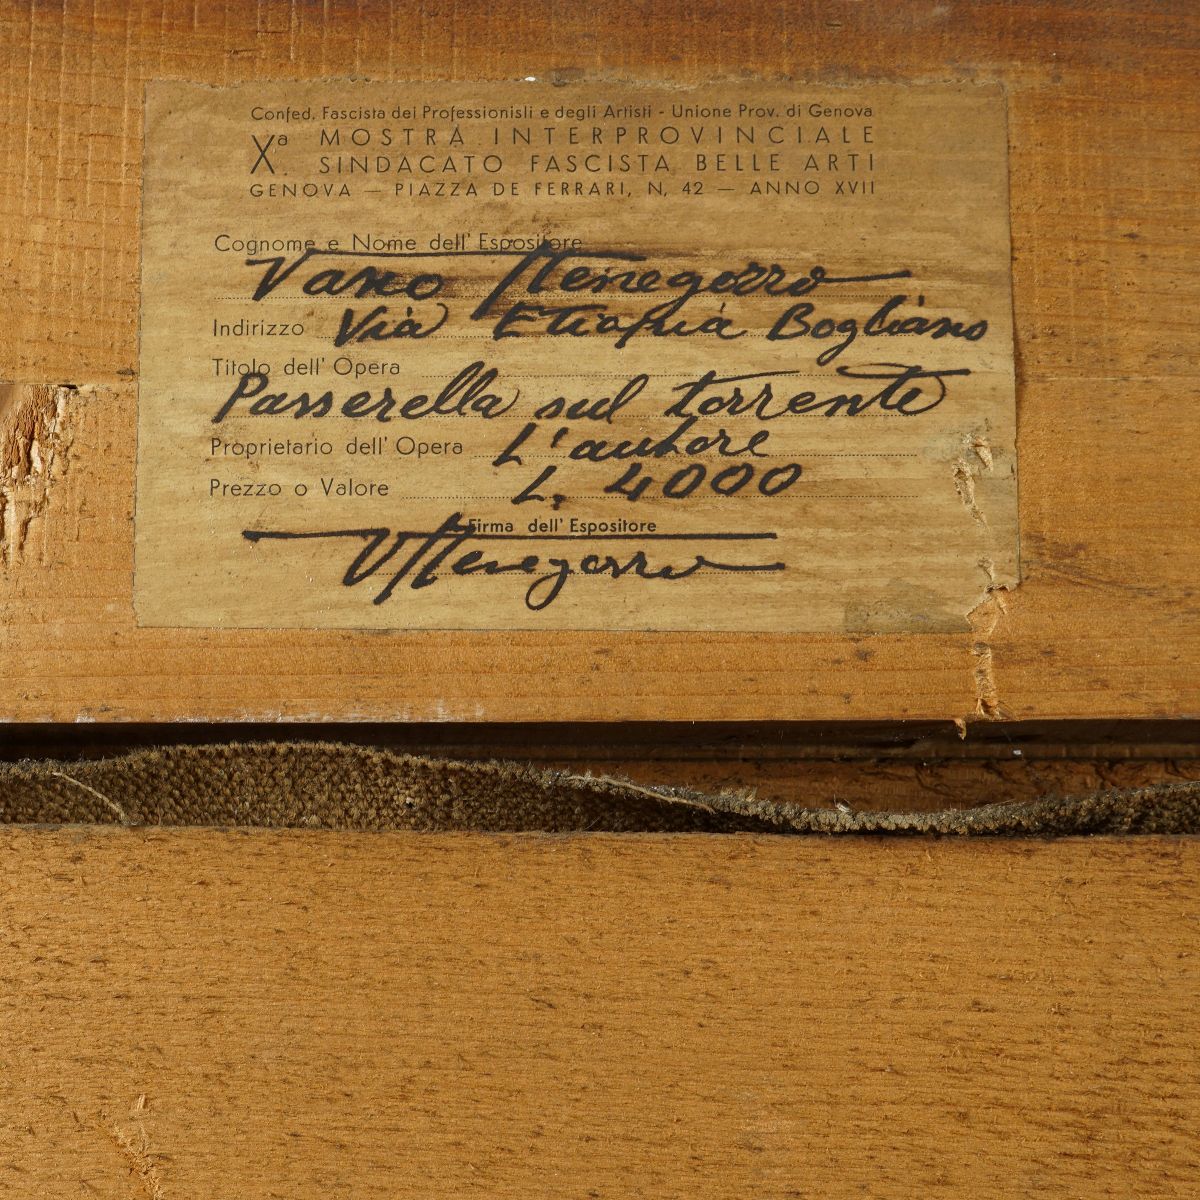 Confed. Fascista dei Professionisti e degli Artisti - Unione Prov. di Genova
Xª. MOSTRA INTERPROVINCIALE
SINDACATO FASCISTA BELLE ARTI
GENOVA — PIAZZA DE FERRARI, N. 42 — ANNO XVII
Cognome e Nome dell' Espositore
Indirizzo Via Etiopia Bogliasco
Titolo dell' Opera
Passerella sul torrente
Proprietario dell' Opera L'autore
Prezzo o Valore L. 4000
Firma dell' Espositore